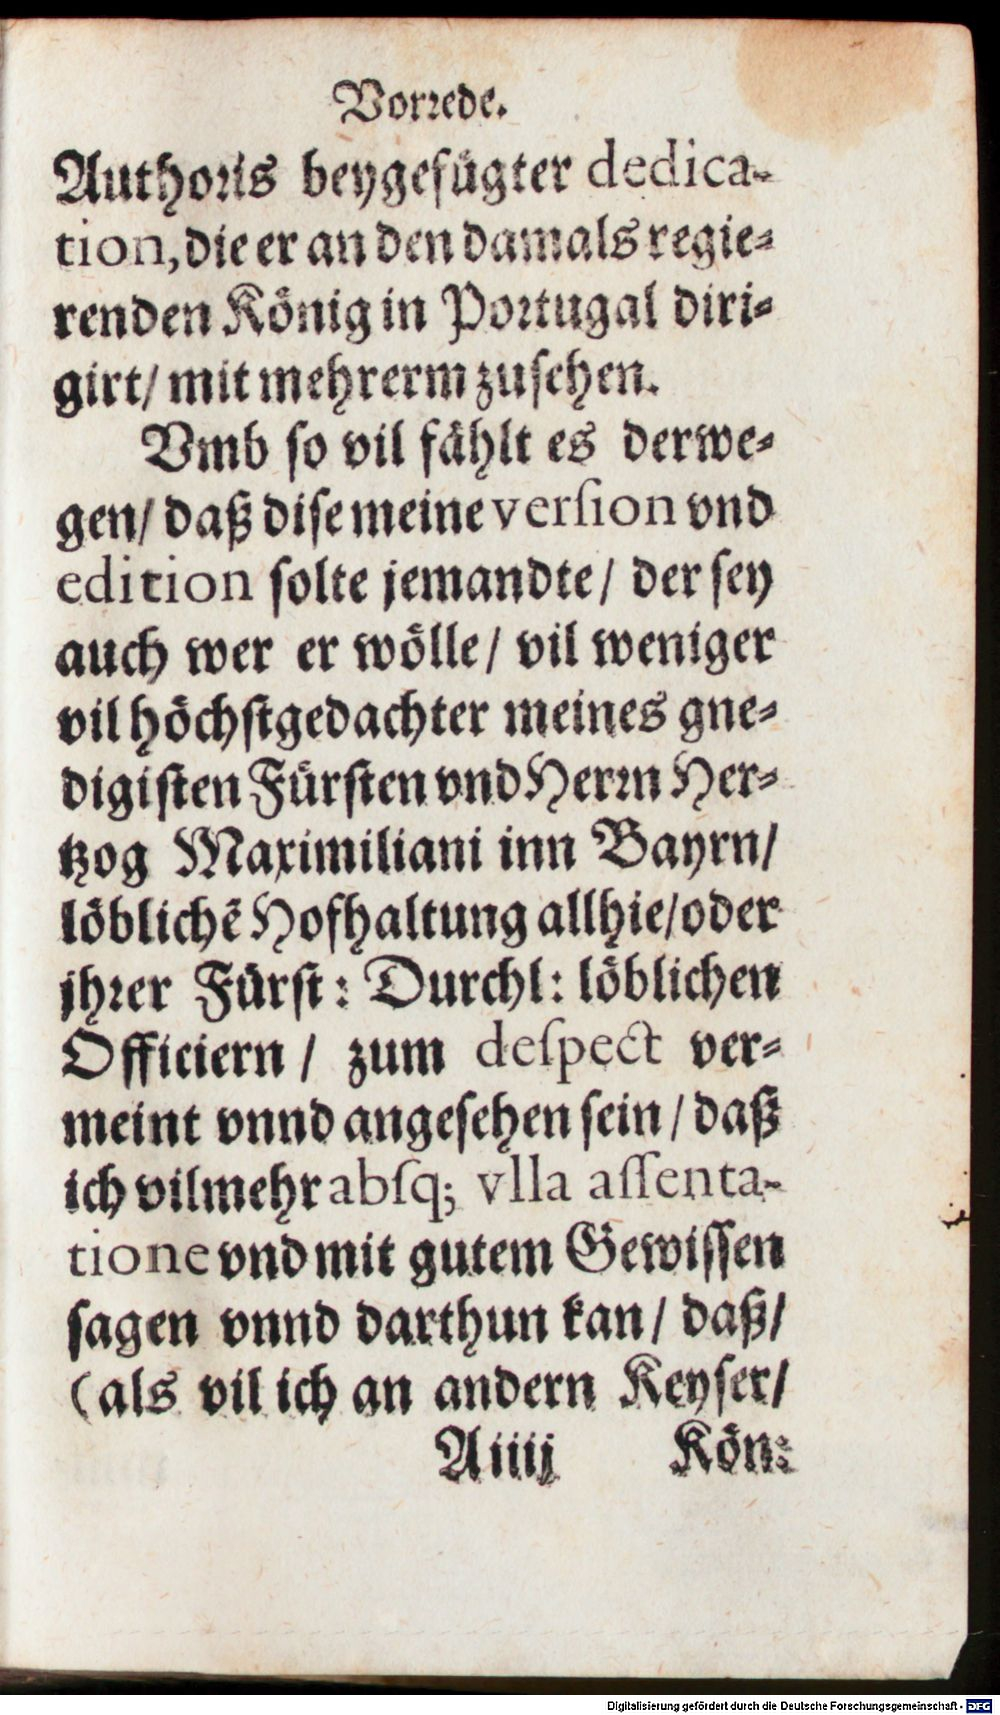 Vorꝛede.
Authoꝛis beygefügter dedica-
tion, die er an den damals regie-
renden König in Poꝛtugal diri-
girt/ mit mehrerm zusehen.
Vmb so vil fählt es derwe-
gen/ daß dise meine verſion vnd
edition solte jemandte/ der sey
auch wer er wölle/ vil weniger
vil höchstgedachter meines gne-
digisten Fürsten vnd Herꝛn Her-
tzog Maximiliani inn Bayrn/
löblichē Hofhaltung allhie/ oder
jhꝛer Fürst: Durchl: löblichen
Officiern/ zum deſpect ver-
meint vnnd angesehen sein/ daß
ich vilmehr abſq; vlla aſſenta-
tione vnd mit gutem Gewissen
sagen vnnd darthun kan/ daß/
(als vil ich an andern Keyser/
A iiij Kön:
Digitalisierung gefördert durch die Deutsche Forschungsgemeinschaft - DFG